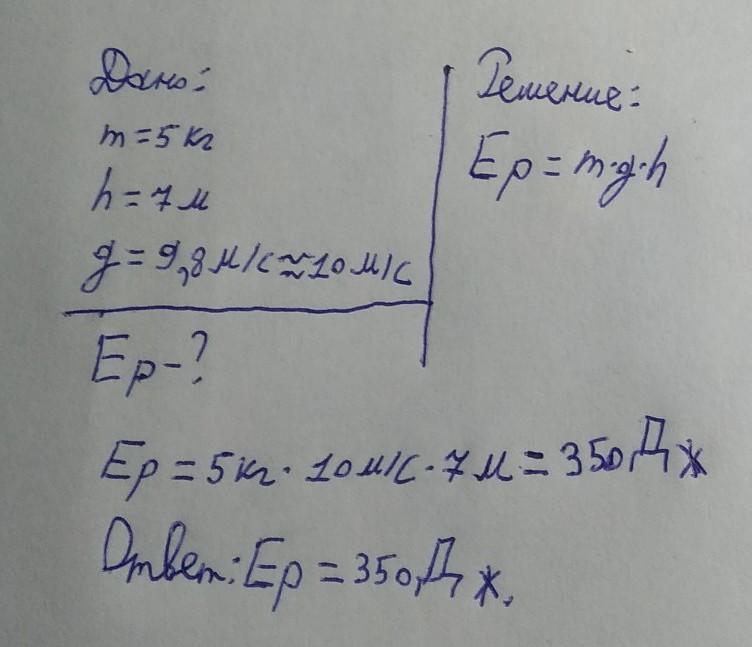 Дано:
m=5 кг
h=7 м
g=9,8 м/с≈10 м/с
Ep-?
Решение:
Ep=m·g·h
Ep=5кг·10м/с·7м=350Дж
Ответ:Ep=350Дж.